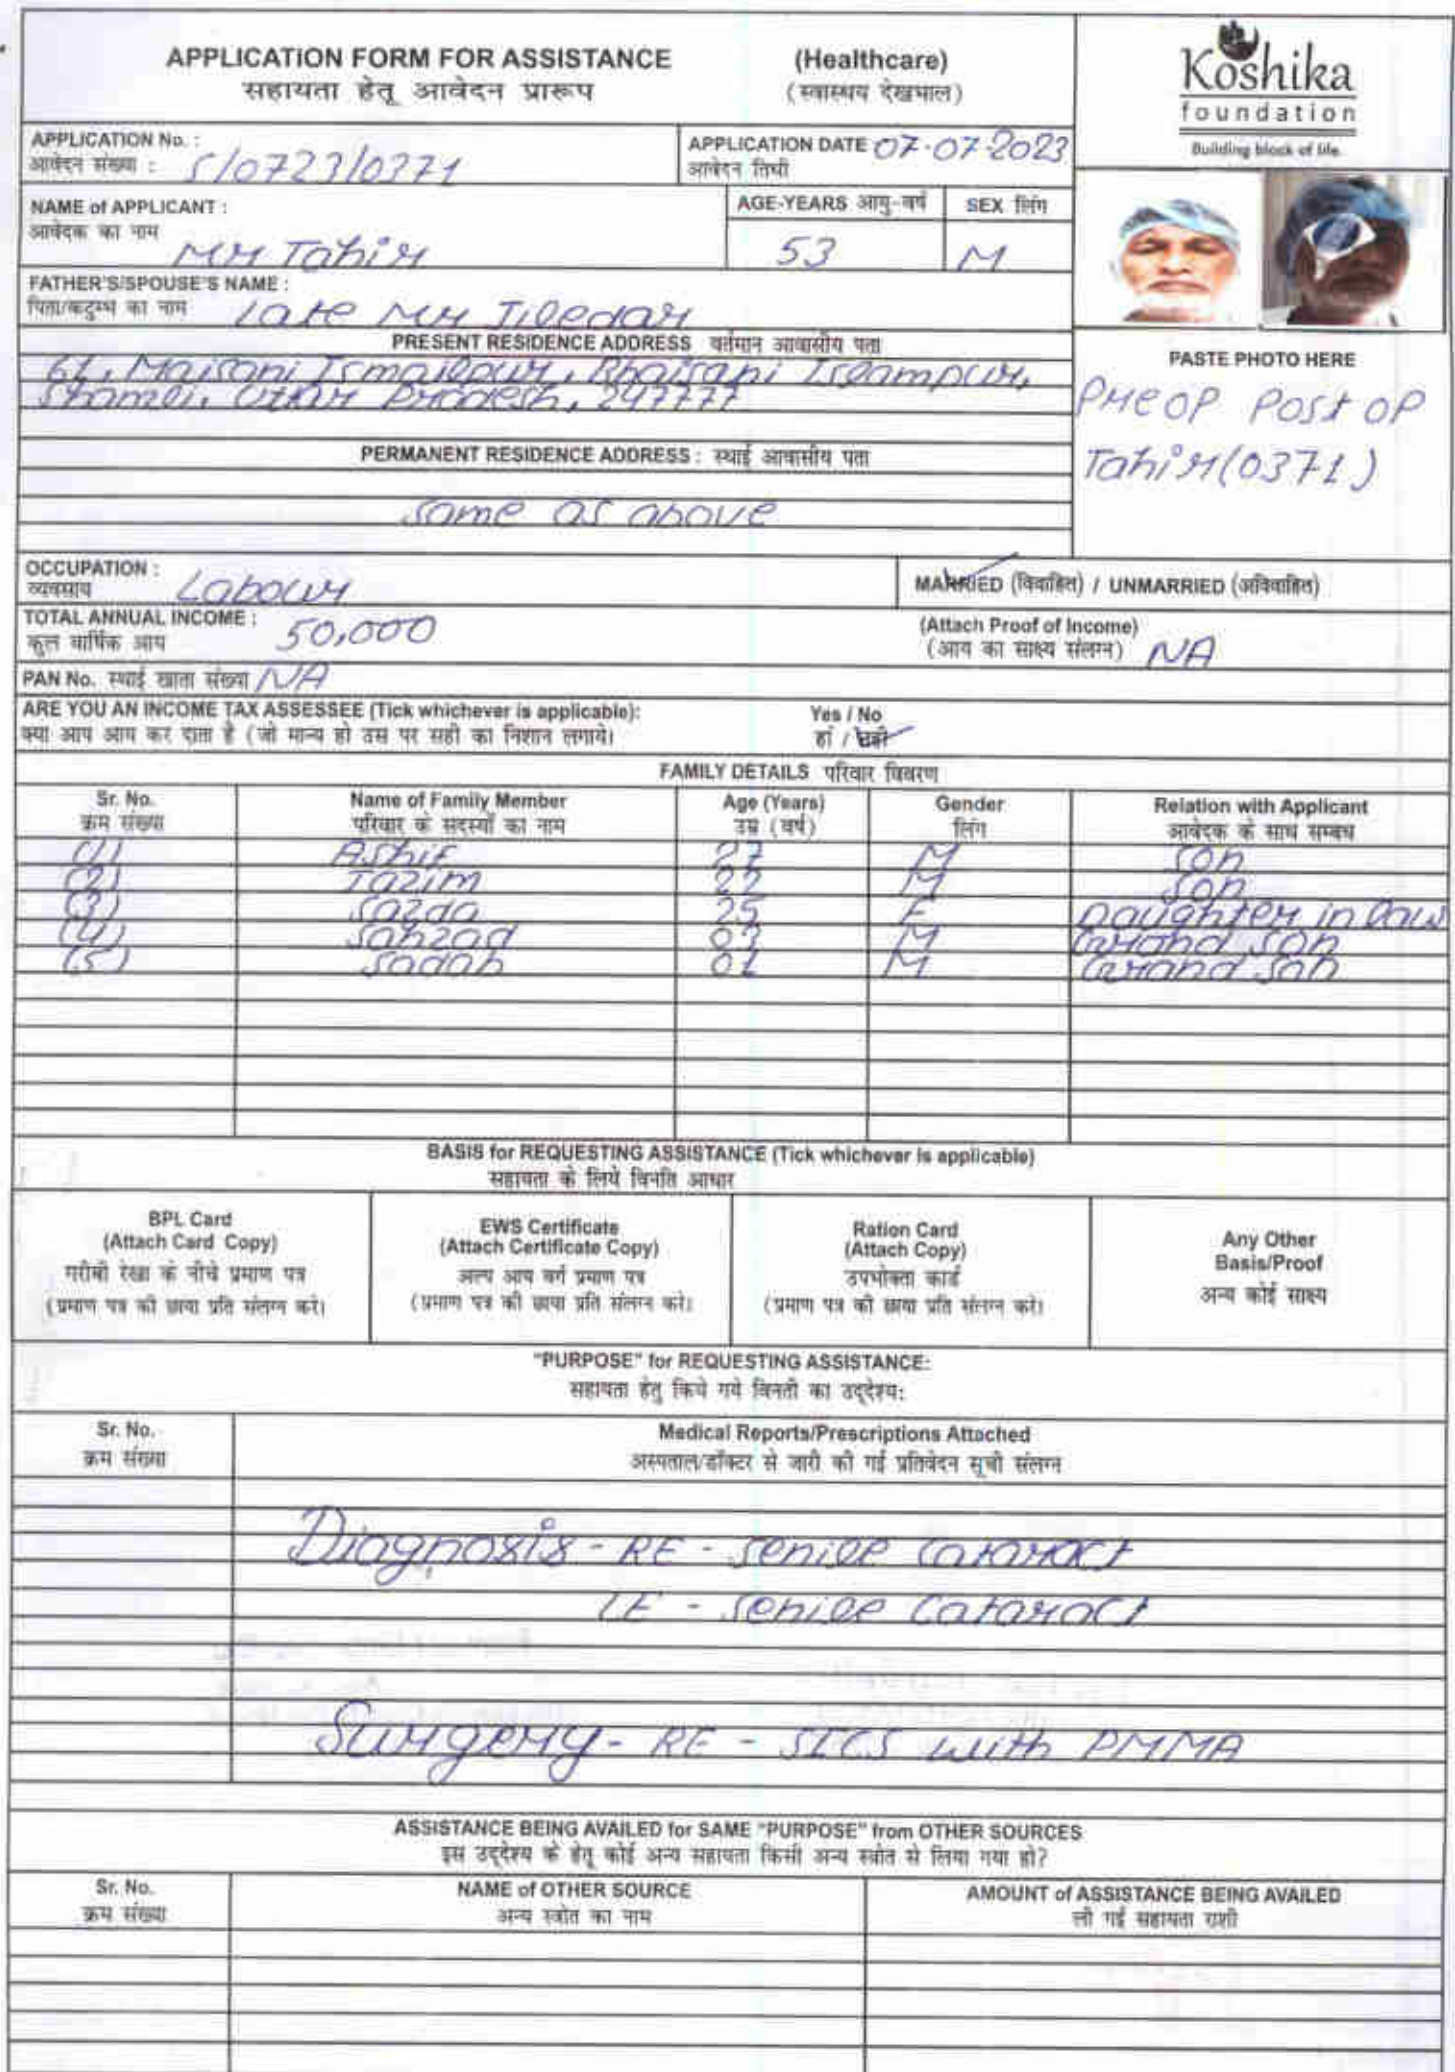 APPLICATION FORM FOR ASSISTANCE (Healthcare)
सहायता हेतू आवेदन प्रारूप (स्वास्थय देखभाल)
Koshika
foundation
Building block of life.
APPLICATION No. :
आवेदन संख्या : S/0723/0371
APPLICATION DATE 07-07-2023
आवेदन तिथी
NAME of APPLICANT :
आवेदक का नाम
Mr Tahir
AGE-YEARS आयु-वर्ष
53
SEX लिंग
M
FATHER'S/SPOUSE'S NAME :
पिता/कटुम्भ का नाम Late Mr Jiledar
PRESENT RESIDENCE ADDRESS वर्तमान आवासीय पता
61, Maisani Ismailpur, Bhaisani Islampur,
Shamli, Uttar Pradesh, 247777
PASTE PHOTO HERE
Preop Post op
Tahir (0371)
PERMANENT RESIDENCE ADDRESS : स्थाई आवासीय पता
same as above
OCCUPATION :
व्यवसाय Labour
MARRIED (विवाहित) / UNMARRIED (अविवाहित)
TOTAL ANNUAL INCOME :
कुल वार्षिक आय 50,000
(Attach Proof of Income)
(आय का साक्ष्य संलग्न) NA
PAN No. स्थाई खाता संख्या NA
ARE YOU AN INCOME TAX ASSESSEE (Tick whichever is applicable): Yes / No
क्या आप आय कर दाता है (जो मान्य हो उस पर सही का निशान लगाये। हां / नहीं
FAMILY DETAILS परिवार विवरण
Sr. No. Name of Family Member Age (Years) Gender Relation with Applicant
क्रम संख्या परिवार के सदस्यों का नाम उम्र (वर्ष) लिंग आवेदक के साथ सम्बध
(1) Ashif 27 M Son
(2) Tazim 22 M Son
(3) Sazda 25 F Daughter in law
(4) Sahzad 03 M Grand son
(5) Sadab 01 M Grand son
BASIS for REQUESTING ASSISTANCE (Tick whichever is applicable)
सहायता के लिये विनति आधार
BPL Card
(Attach Card Copy)
गरीबी रेखा के नीचे प्रमाण पत्र
(प्रमाण पत्र की छाया प्रति संलग्न करे)
EWS Certificate
(Attach Certificate Copy)
अल्प आय वर्ग प्रमाण पत्र
(प्रमाण पत्र की छाया प्रति संलग्न करे)
Ration Card
(Attach Copy)
उपभोक्ता कार्ड
(प्रमाण पत्र की छाया प्रति संलग्न करे)
Any Other
Basis/Proof
अन्य कोई साक्ष्य
"PURPOSE" for REQUESTING ASSISTANCE:
सहायता हेतु किये गये विनती का उद्देश्य:
Sr. No. Medical Reports/Prescriptions Attached
क्रम संख्या अस्पताल/डॉक्टर से जारी की गई प्रतिवेदन सूची संलग्न
Diagnosis - RE - Senile Cataract
LE - Senile Cataract
Surgery - RE - SICS with PMMA
ASSISTANCE BEING AVAILED for SAME "PURPOSE" from OTHER SOURCES
इस उद्देश्य के हेतू कोई अन्य सहायता किसी अन्य स्त्रोत से लिया गया हो?
Sr. No. NAME of OTHER SOURCE AMOUNT of ASSISTANCE BEING AVAILED
क्रम संख्या अन्य स्त्रोत का नाम ली गई सहायता राशी